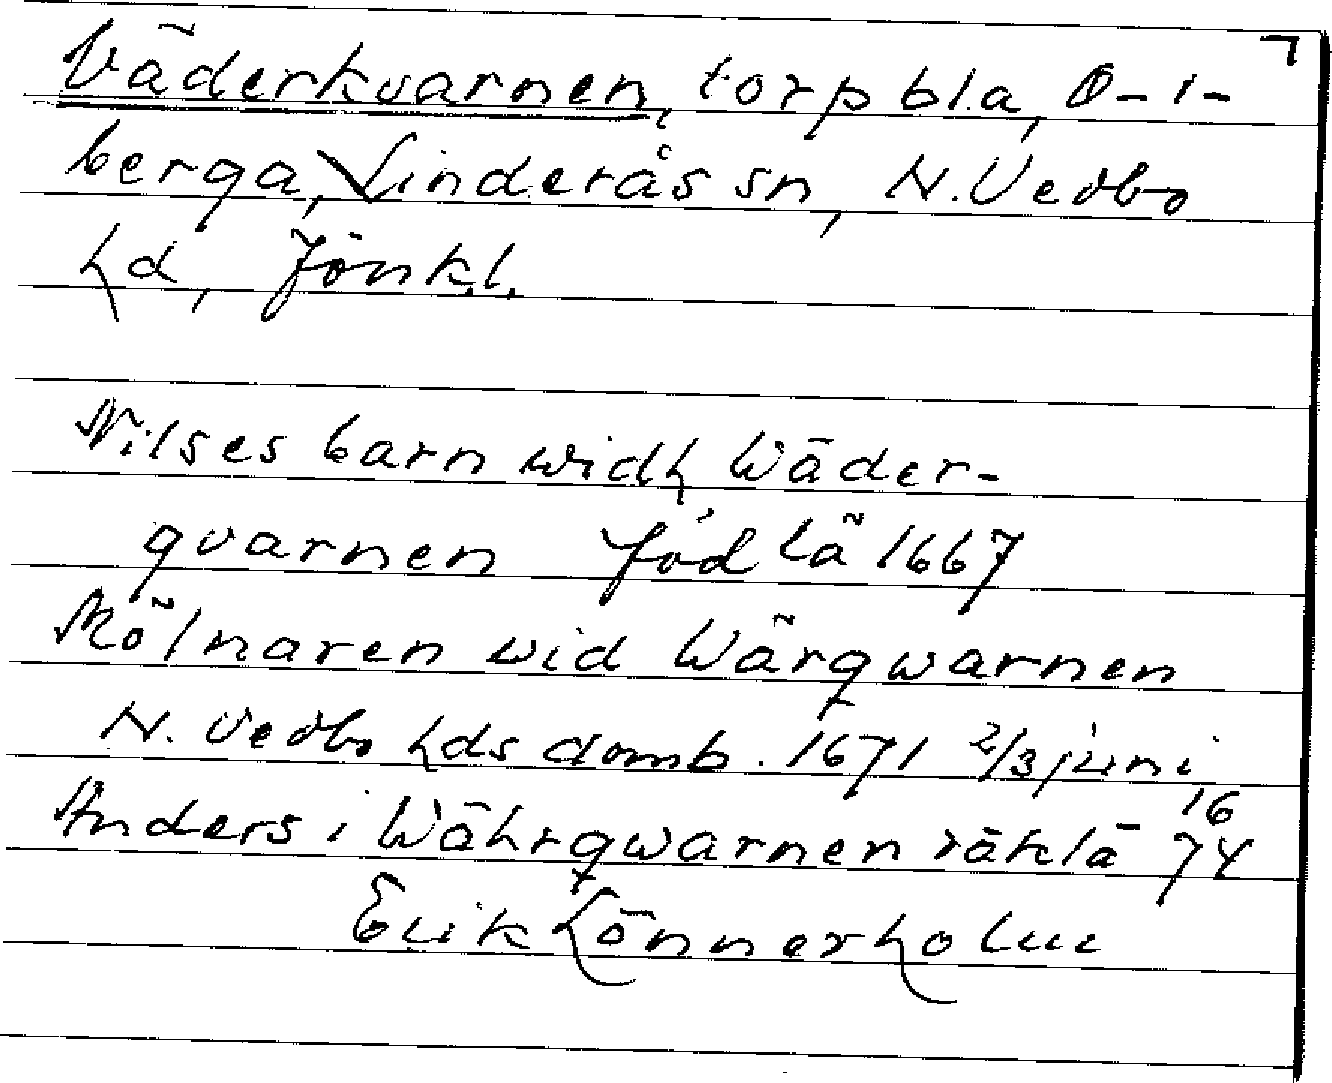 Väderkvarnen, torp bl.a, O-1-
berga, Linderås sn, N. Vedbo
hd, Jönk.l.
Nilses barn widh Wäder-
qvarnen föd lä 1667
Mölnaren wid Wärqwarnen
N. Vedbo hds domb. 1671 2/3 juni
Anders i Währqwarnen räklä 1674
Erik Lönnerholm